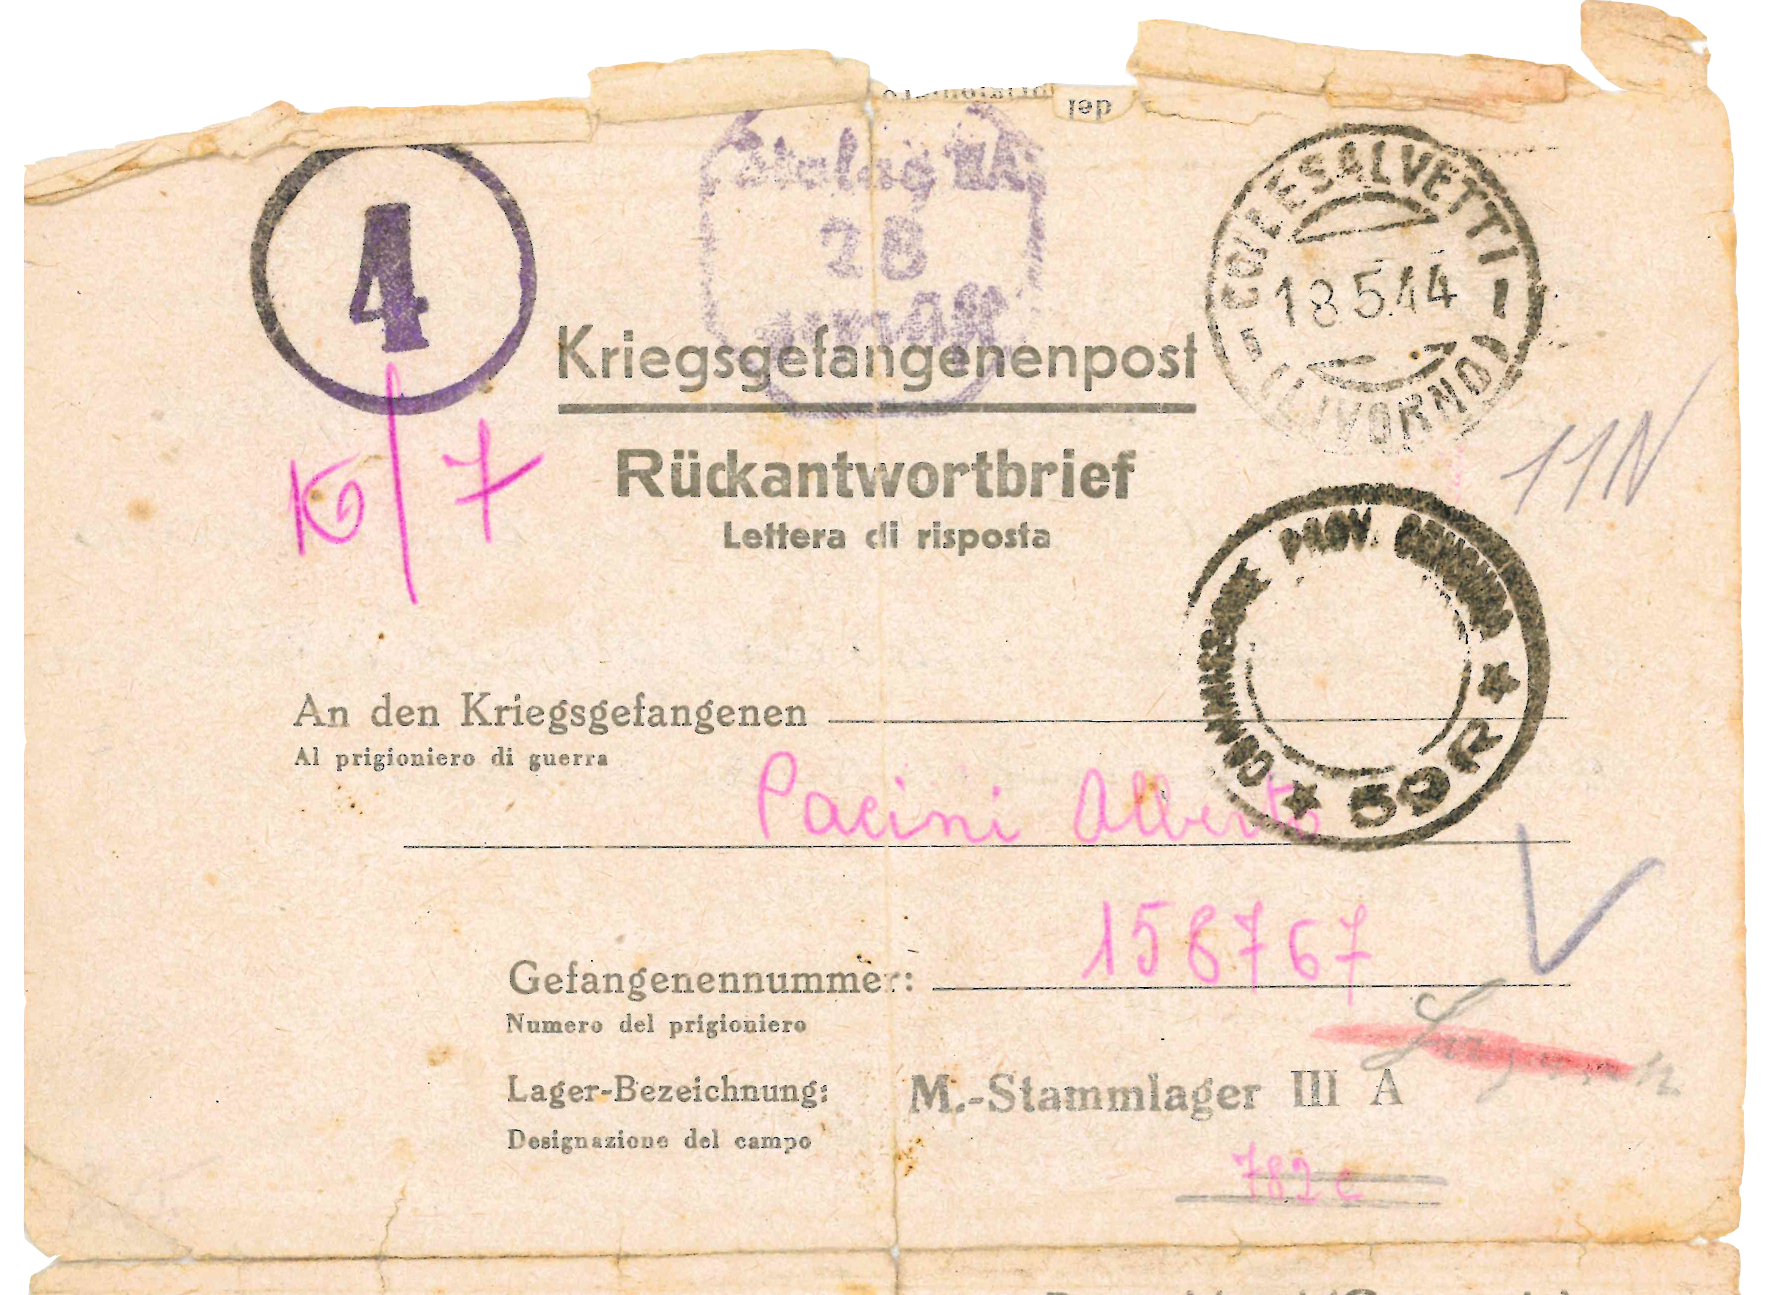 del
4
Stalag IIIA
28
COLLESALVETTI
18.5.44
(LIVORNO)
Kriegsgefangenenpost
K/7
Rückantwortbrief
11N
Lettera di risposta
COMMISSIONE PROV. CENSURA
59R
An den Kriegsgefangenen
Al prigioniero di guerra
Pacini Alberto
158767
Gefangenennummer:
Numero del prigioniero
Lager-Bezeichnung: M.-Stammlager III A
Designazione del campo
782 c